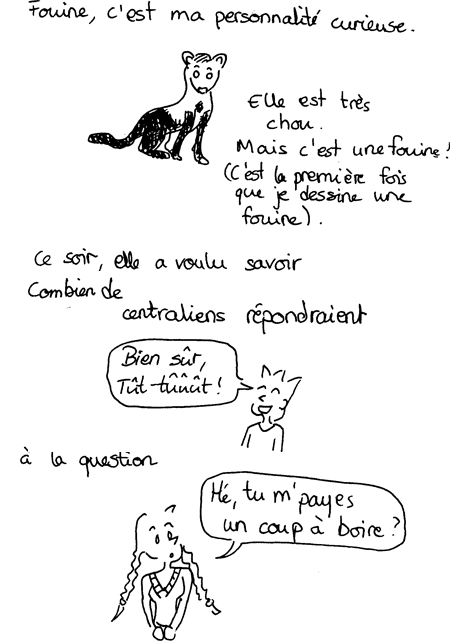 Fouine, c'est ma personnalité curieuse.
Elle est très
chou.
Mais c'est une fouine !
(C'est la première fois
que je dessine une
fouine).
Ce soir, elle a voulu savoir
Combien de
centraliens répondraient
Bien sûr,
Tût-tûûûût !
à la question
Hé, tu m'payes
un coup à boire ?